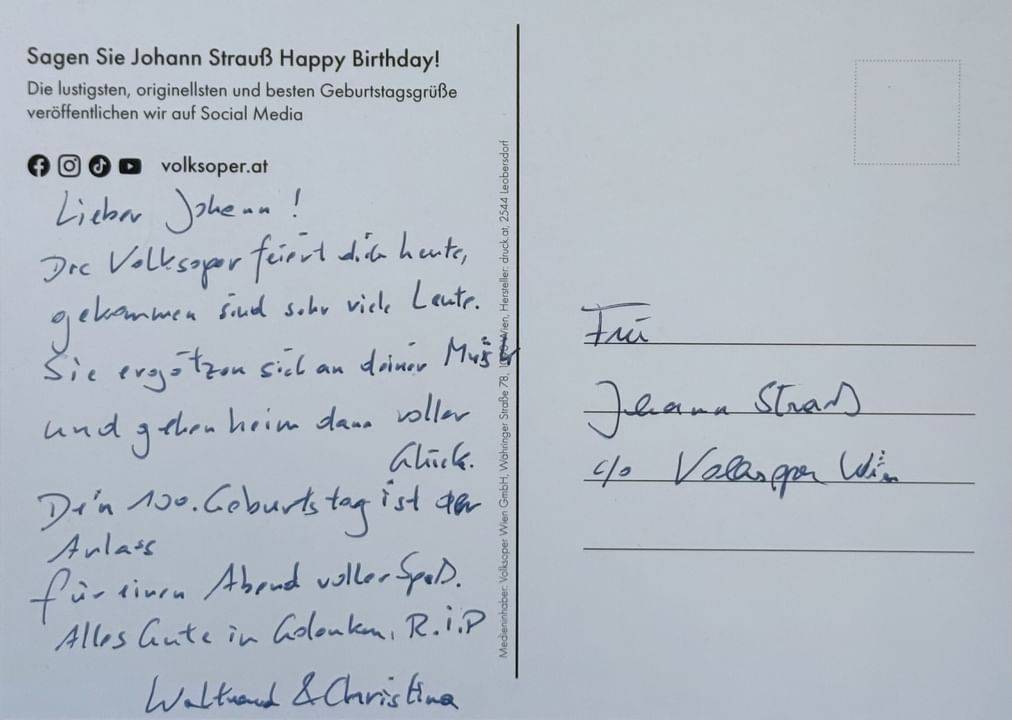 Sagen Sie Johann Strauß Happy Birthday!
Die lustigsten, originellsten und besten Geburtstagsgrüße
veröffentlichen wir auf Social Media
volksoper.at
Lieber Johann!
Die Volksoper feiert dich heute,
gekommen sind sehr viele Leute.
Sie ergötzen sich an deiner Musik
und gehen heim dann voller
Glück.
Dein 100. Geburtstag ist der
Anlass
für einen Abend voller Spaß.
Alles Gute in Gedenken, R.i.P
Waltraud & Christina
Medieninhaber: Volksoper Wien GmbH, Währinger Straße 78, Wien, Hersteller: druck.at, 2544 Leobersdorf
Johann Strauß
c/o Volksoper Wien